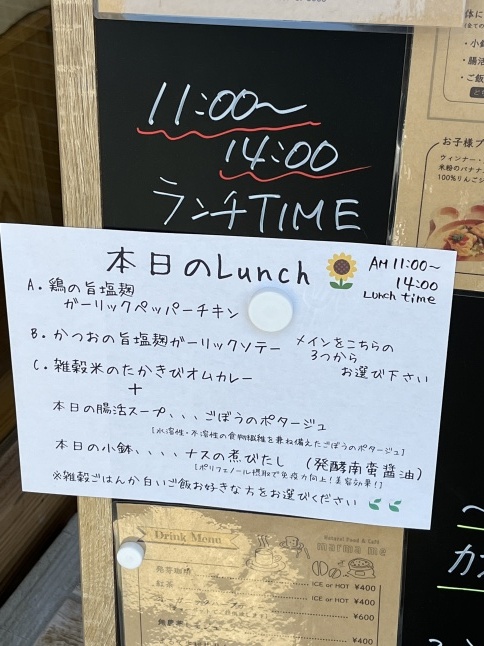 11:00〜
14:00
ランチTIME
本日のLunch
AM 11:00〜
14:00
Lunch time
A. 鶏の旨塩麹
ガーリックペッパーチキン
B. かつおの旨塩麹ガーリックソテー
メインをこちらの
3つから
お選び下さい
C. 雑穀米のたかきびオムカレー
+
本日の腸活スープ、、、ごぼうのポタージュ
[水溶性・不溶性の食物繊維を兼ね備えたごぼうのポタージュ]
本日の小鉢、、、、ナスの煮びたし (発酵南蛮醤油)
[ポリフェノール摂取で免疫力向上!美容効果!]
※雑穀ごはんか白いご飯お好きな方をお選びください
Drink Menu
紅茶
ICE or HOT ¥400
ICE or HOT ¥400
¥600
¥400
・小鉢
・腸活
・ご飯
お子様プ
ウィンナー、
米粉のバナナ
100%りんごジ